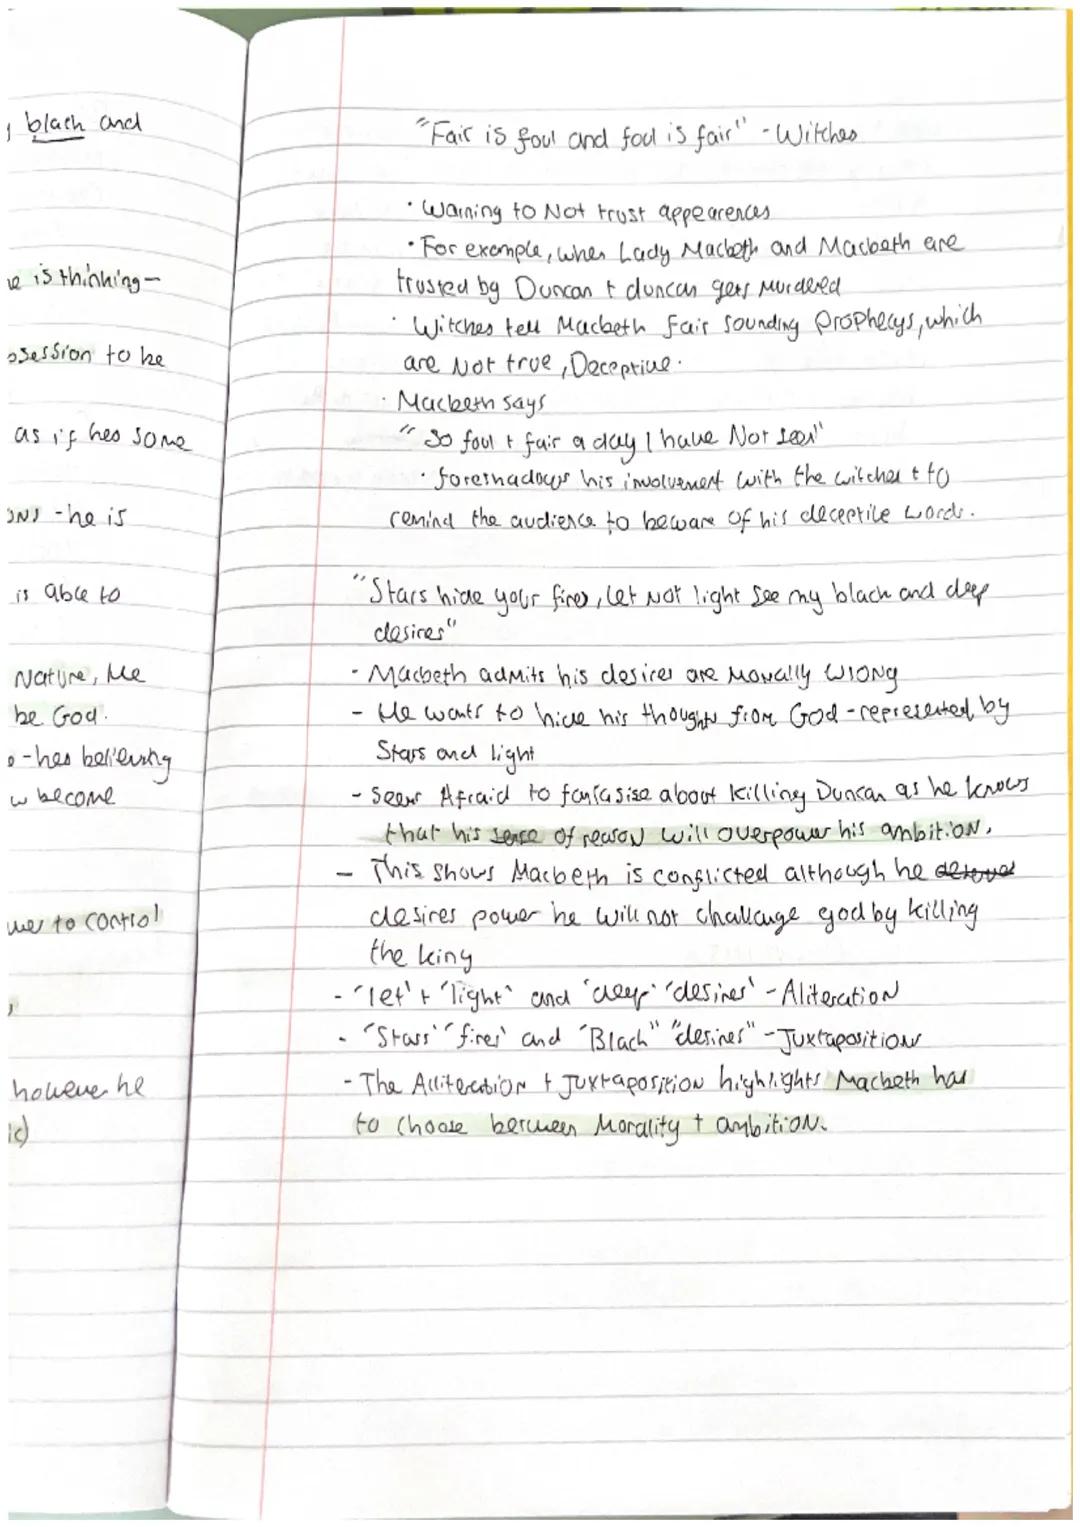 black and
is thinking-
session to be
as if hes some
- he is
is able to
Nature, Me
be God.
- hes believing
become
to control
however he
"Fair is foul and foul is fair" - Witches
· Warning to Not trust appearences
· For example, when Lady Macbeth and Macbeth are
trusted by Duncan + duncan gets Murdered
· Witches tell Macbeth fair sounding prophecys, which
are Not true, Deceptive.
· Macbeth says
" So foul + fair a day I have Not seen"
· foreshadows his involvement with the witches + to
remind the audience to beware of his deceptile words.
"Stars hide your fires, let Not light see my black and deep
desires"
- Macbeth admits his desires are Morally wrong
- He wants to hide his thoughts from God - represented by
Stars and light
- Seems Afraid to fantasise about killing Duncan as he knows
that his sense of reason will overpower his ambition.
- This shows Macbeth is conflicted although he
desires power he will not challenge god by killing
the king
- 'let' + 'light' and 'deep' 'desires' - Aliteration
- "Stars" 'fires' and "Black" "desires" - Juxtaposition
- The Alliteration + Juxtaposition highlights Macbeth has
to choose between Morality + ambition.